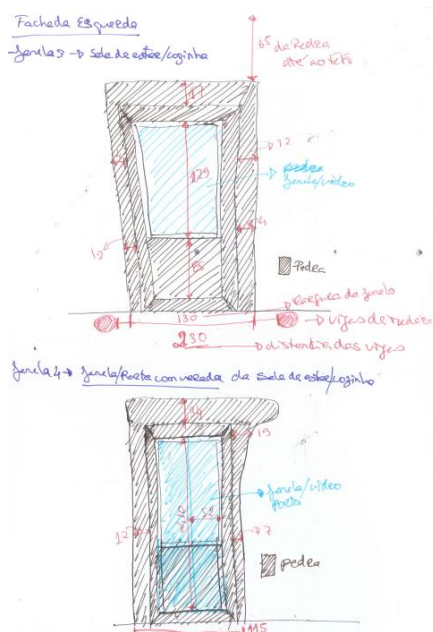 Fachada Esquerda
-Janela 3 → Sala de estar/cozinha
65 da Pedra
até ao teto
17
12
129
pedra
janela/vidro
4
12
Pedra
Largura da janela
130
vigas de madeira
230
distantia das vigas
Janela 4 → Janela/Porta com varada da Sala de estar/cozinha
34
19
janela/vidro
Porta
52
12
7
pedra
115